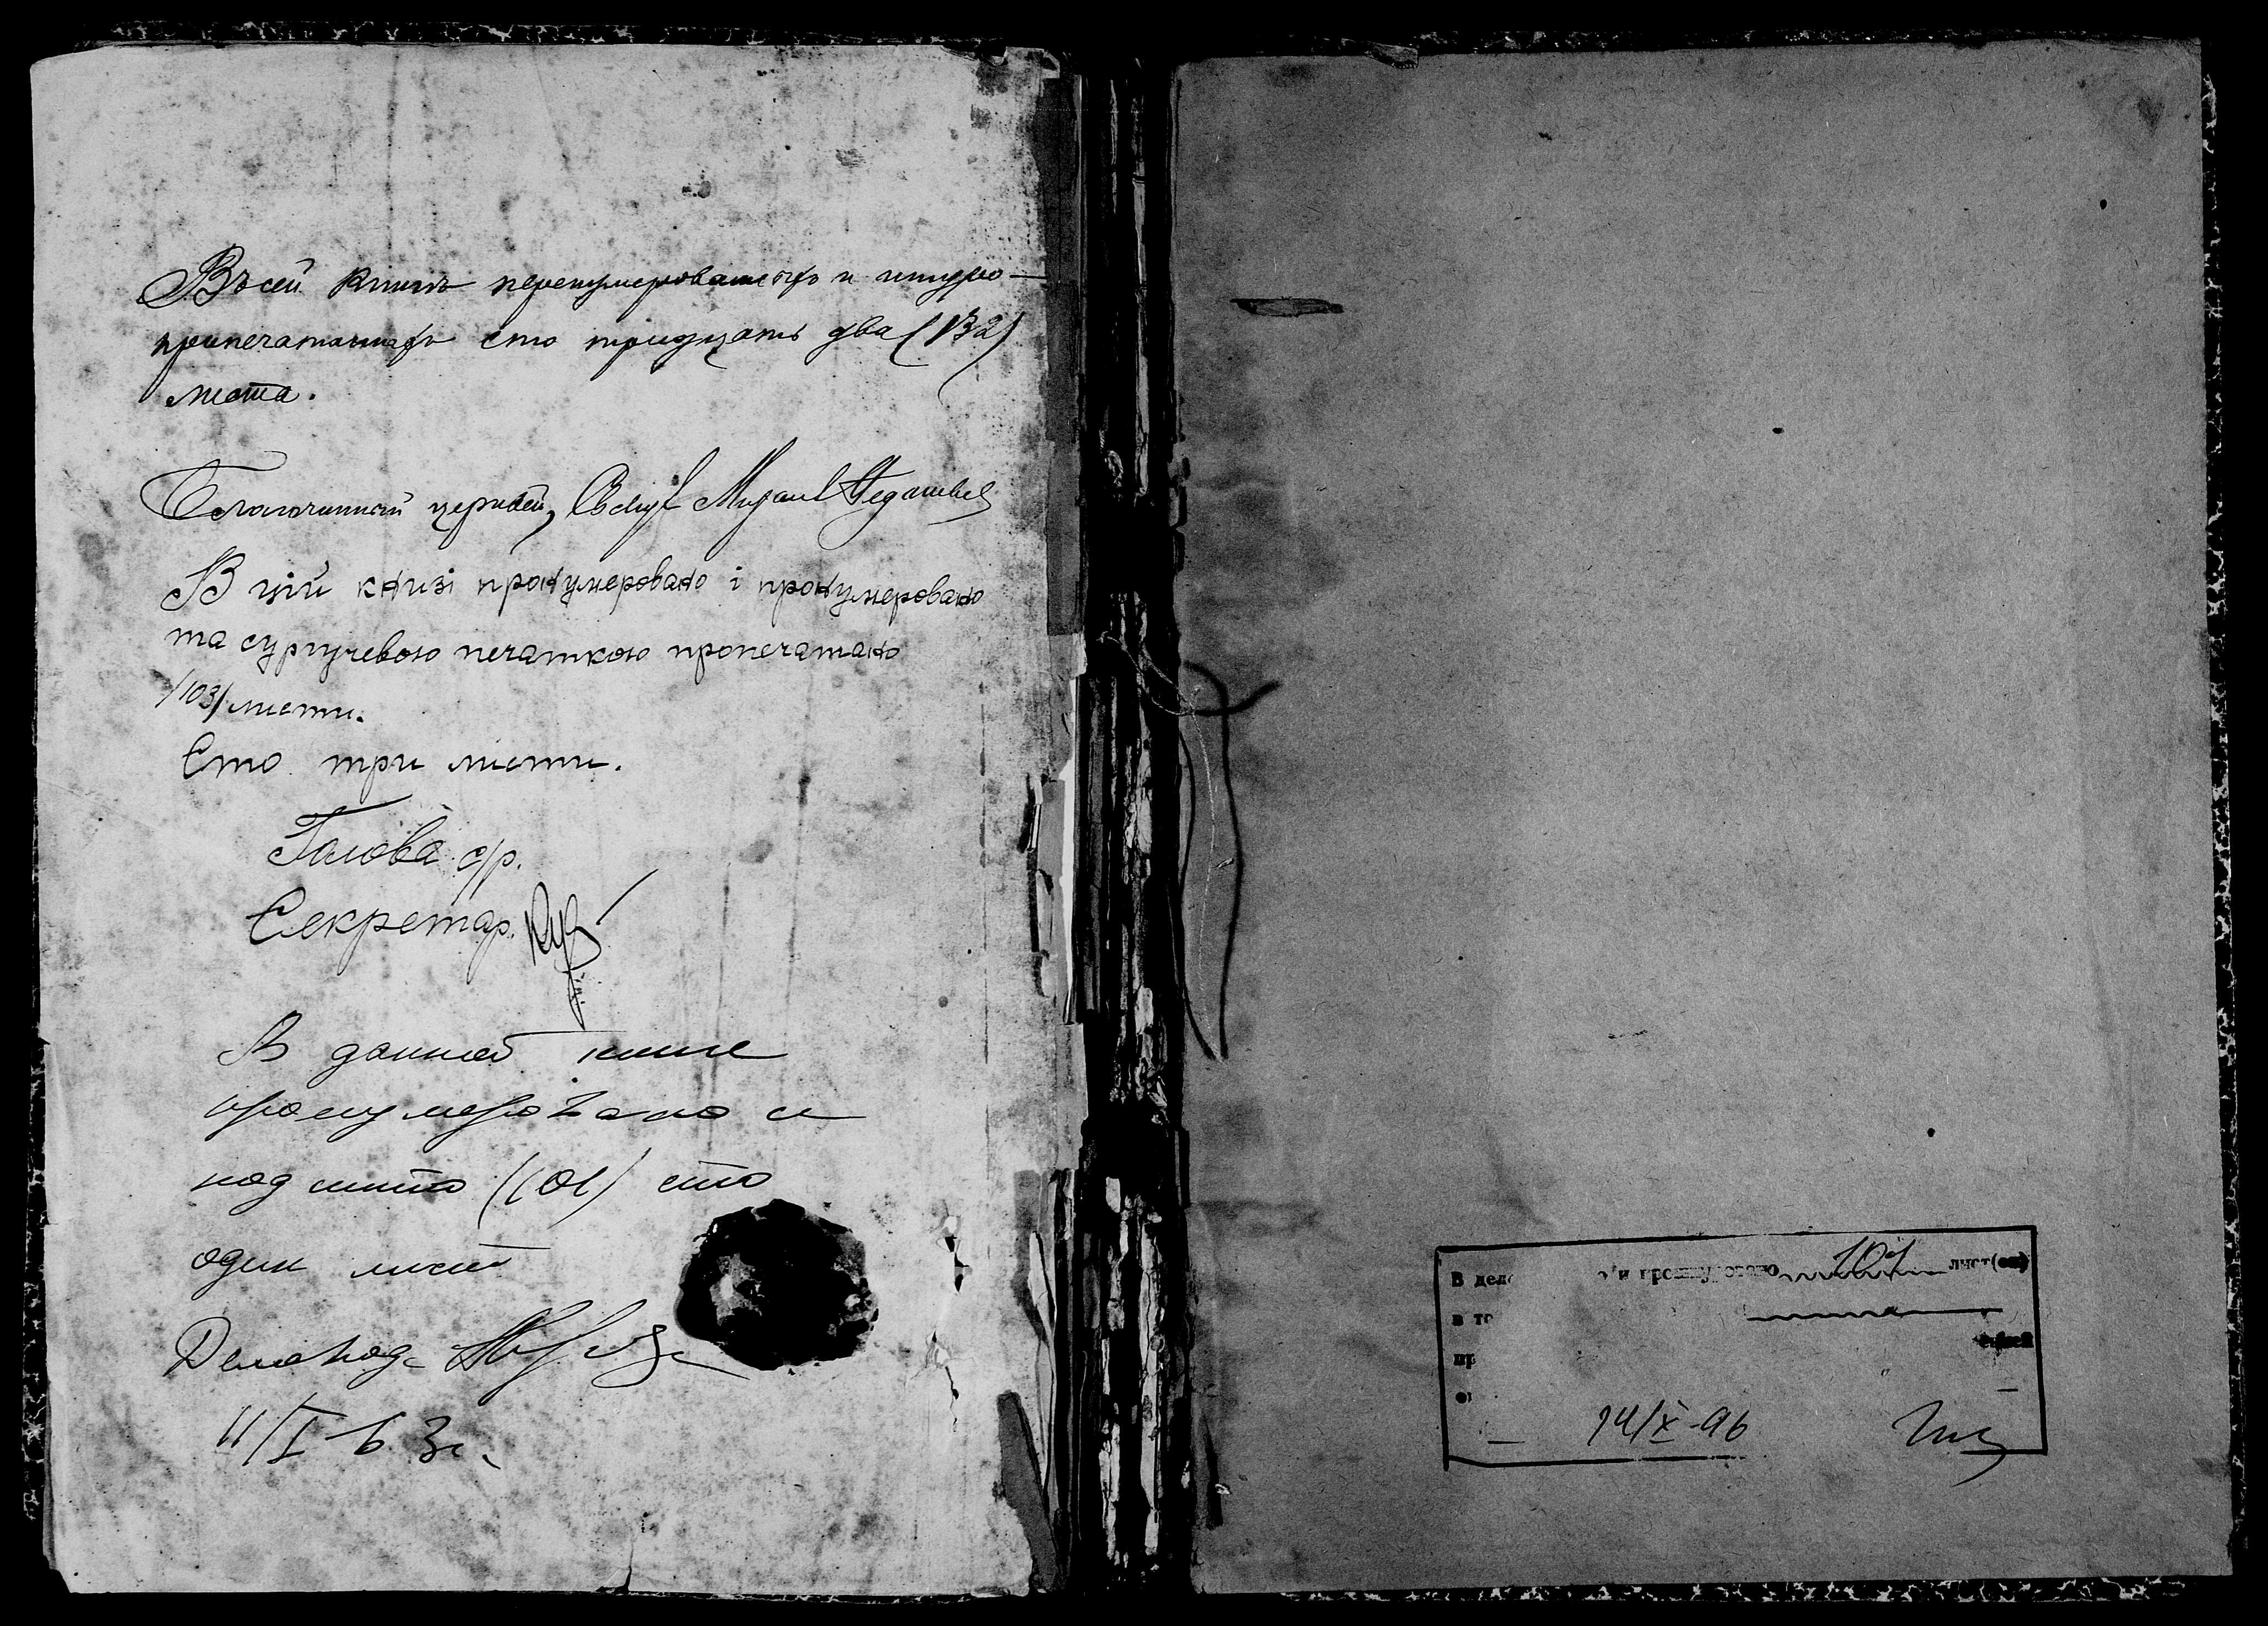 Въ сей книгѣ перенумерованныхъ и шнуро-
припечатанныхъ сто тридцать два (132)
листа.
Благочинный церквей, Свящ Михаил
В цій книзі пронумеровано і пронумеровано
та сургучевою печаткою пропечатано
/103/ листи.
Сто три листи.
Голова с/р.
Секретар.
В данной книге
пронумеровано и
подшито (101) сто
один лист
Деловод-
11/I-63г.
В дел и прошнуровано 101 лист(ов)
в то
пр
14/X-96